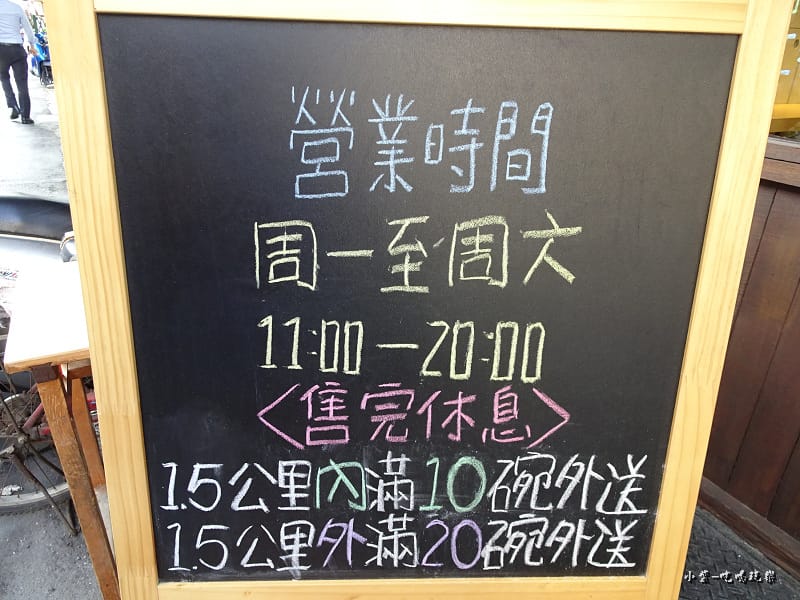 營業時間
周一至周六
11:00－20:00
<售完休息>
1.5公里內滿10碗外送
1.5公里外滿20碗外送
小紫-吃喝玩樂